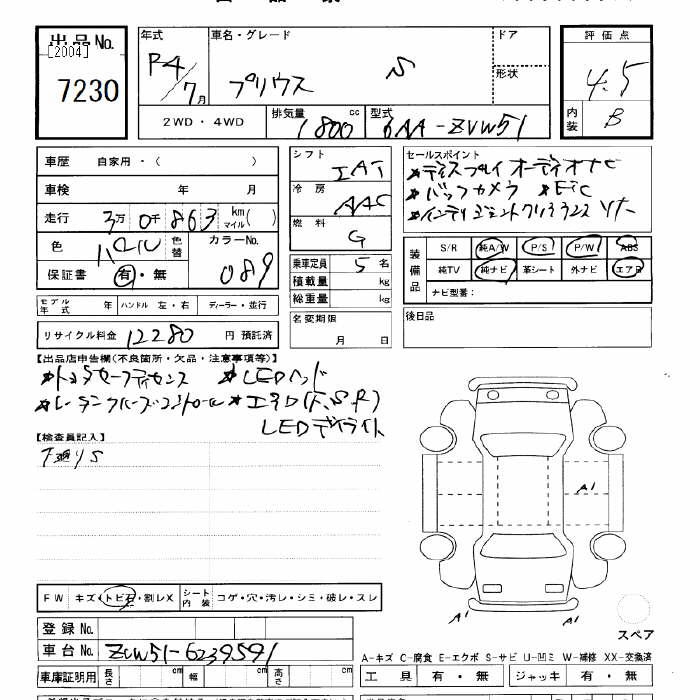 出品No.
[2004]
7230
年式
R4/7月
車名・グレード
プリウス S
ドア
形状
評価点
4.5
内装 B
2WD・4WD
排気量 1800 cc
型式 6AA-ZVW51
車歴 自家用・( )
車検 年 月
走行 3万0千863 km マイル( )
色 パール 色替
カラーNo. 089
保証書 有・無
シフト IAT
冷房 AAC
燃料 G
乗車定員 5 名
積載量 kg
総重量 kg
セールスポイント
★ディスプレイオーディオナビ
★バックカメラ ★ETC
★インテリジェントクリアランスソナー
装備品
S/R 純A/W P/S P/W ABS
純TV 純ナビ 革シート 外ナビ エアB
ナビ型番:
モデル年式 年 ハンドル 左・右 ディーラー・並行
名変期限
月 日
後日品
リサイクル料金 12280 円 預託済
【出品店申告欄(不良箇所・欠品・注意事項等)】
★トヨタセーフティセンス ★LEDヘッド
★レーダークルーズコントロール ★エアロ(F,S,R)
LEDデイライト
【検査員記入】
下廻りS
A1
A1
A1
FW キズ・トビ石・割レX
シート内装 コゲ・穴・汚レ・シミ・破レ・スレ
スペア
登録No.
車台No. ZVW51-6239591
A-キズ C-腐食 E-エクボ S-サビ U-凹ミ W-補修 XX-交換済
車庫証明用 長さ cm 幅 cm 高さ cm
工具 有・無 ジャッキ 有・無